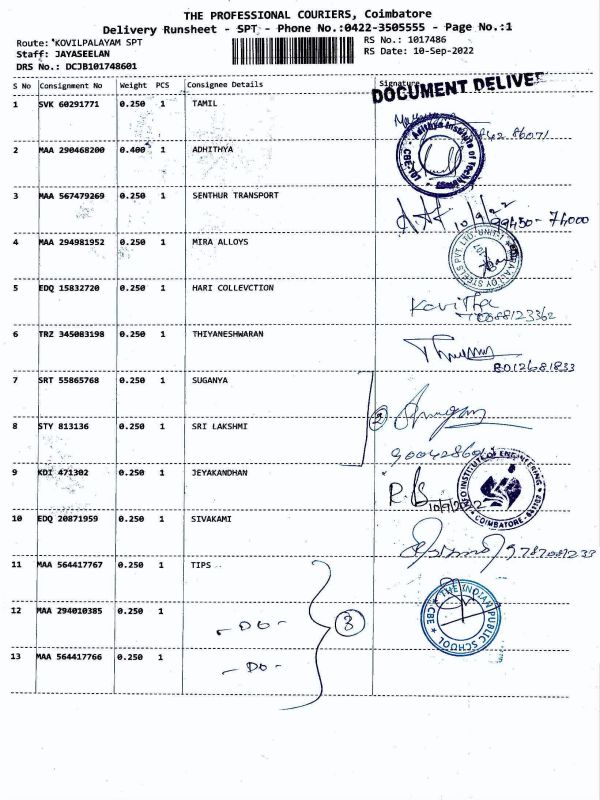 THE PROFESSIONAL COURIERS, Coimbatore
Delivery Runsheet - SPT - Phone No.:0422-3505555 - Page No.:1
Route: *KOVILPALAYAM SPT
RS No.: 1017486
Staff: JAYASEELAN
RS Date: 10-Sep-2022
DRS No.: DCJB101748601
S No Consignment No Weight PCS Consignee Details Signature
DOCUMENT DELIVER
1 SVK 60291771 0.250 1 TAMIL
2 MAA 290468200 0.400 1 ADHITHYA
Adithya Institute of Technology
CBE-107
3 MAA 567479269 0.250 1 SENTHUR TRANSPORT
10/9/22
99450-74000
4 MAA 294981952 0.250 1 MIRA ALLOYS
5 EDQ 15832720 0.250 1 HARI COLLEVCTION
Kavitha
6 TRZ 345083198 0.250 1 THIYANESHWARAN
8012681833
7 SRT 55865768 0.250 1 SUGANYA
2
8 STY 813136 0.250 1 SRI LAKSHMI
9 KDI 471302 0.250 1 JEYAKANDHAN
INSTITUTE OF ENGINEERING
COIMBATORE
10/9/2022
10 EDQ 20871959 0.250 1 SIVAKAMI
9787089233
11 MAA 564417767 0.250 1 TIPS
THE INDIAN PUBLIC SCHOOL
CBE
12 MAA 294010385 0.250 1 -DO-
3
13 MAA 564417766 0.250 1 -DO-